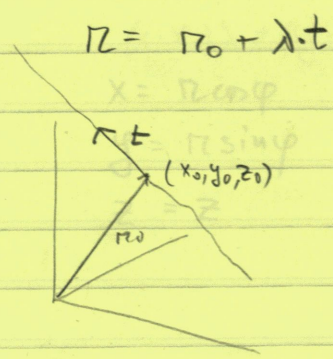 r = r₀ + λ·t
x = r cosφ
y = r sinφ
z = z
t
(x₀,y₀,z₀)
r₀